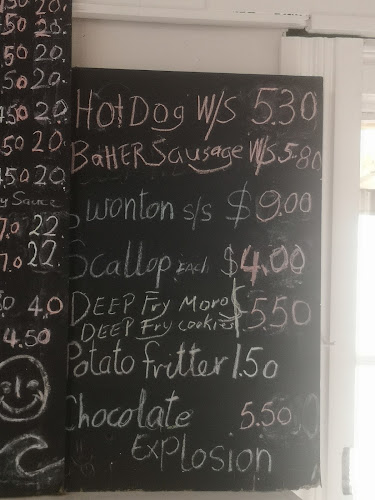 50 20.
50 20.
50 20.
50 20.
450 20.
50 20
450 20.
y Sauce
7.0 22
7.0 22.
50 4.0
4.50
Hot Dog W/S 5.30
BattER Sausage W/S 5.80
5 wonton s/s $9.00
Scallop EACH $4.00
DEEP Fry Moro $5.50
DEEP Fry cookies
Potato fritter 1.50
Chocolate 5.50
Explosion